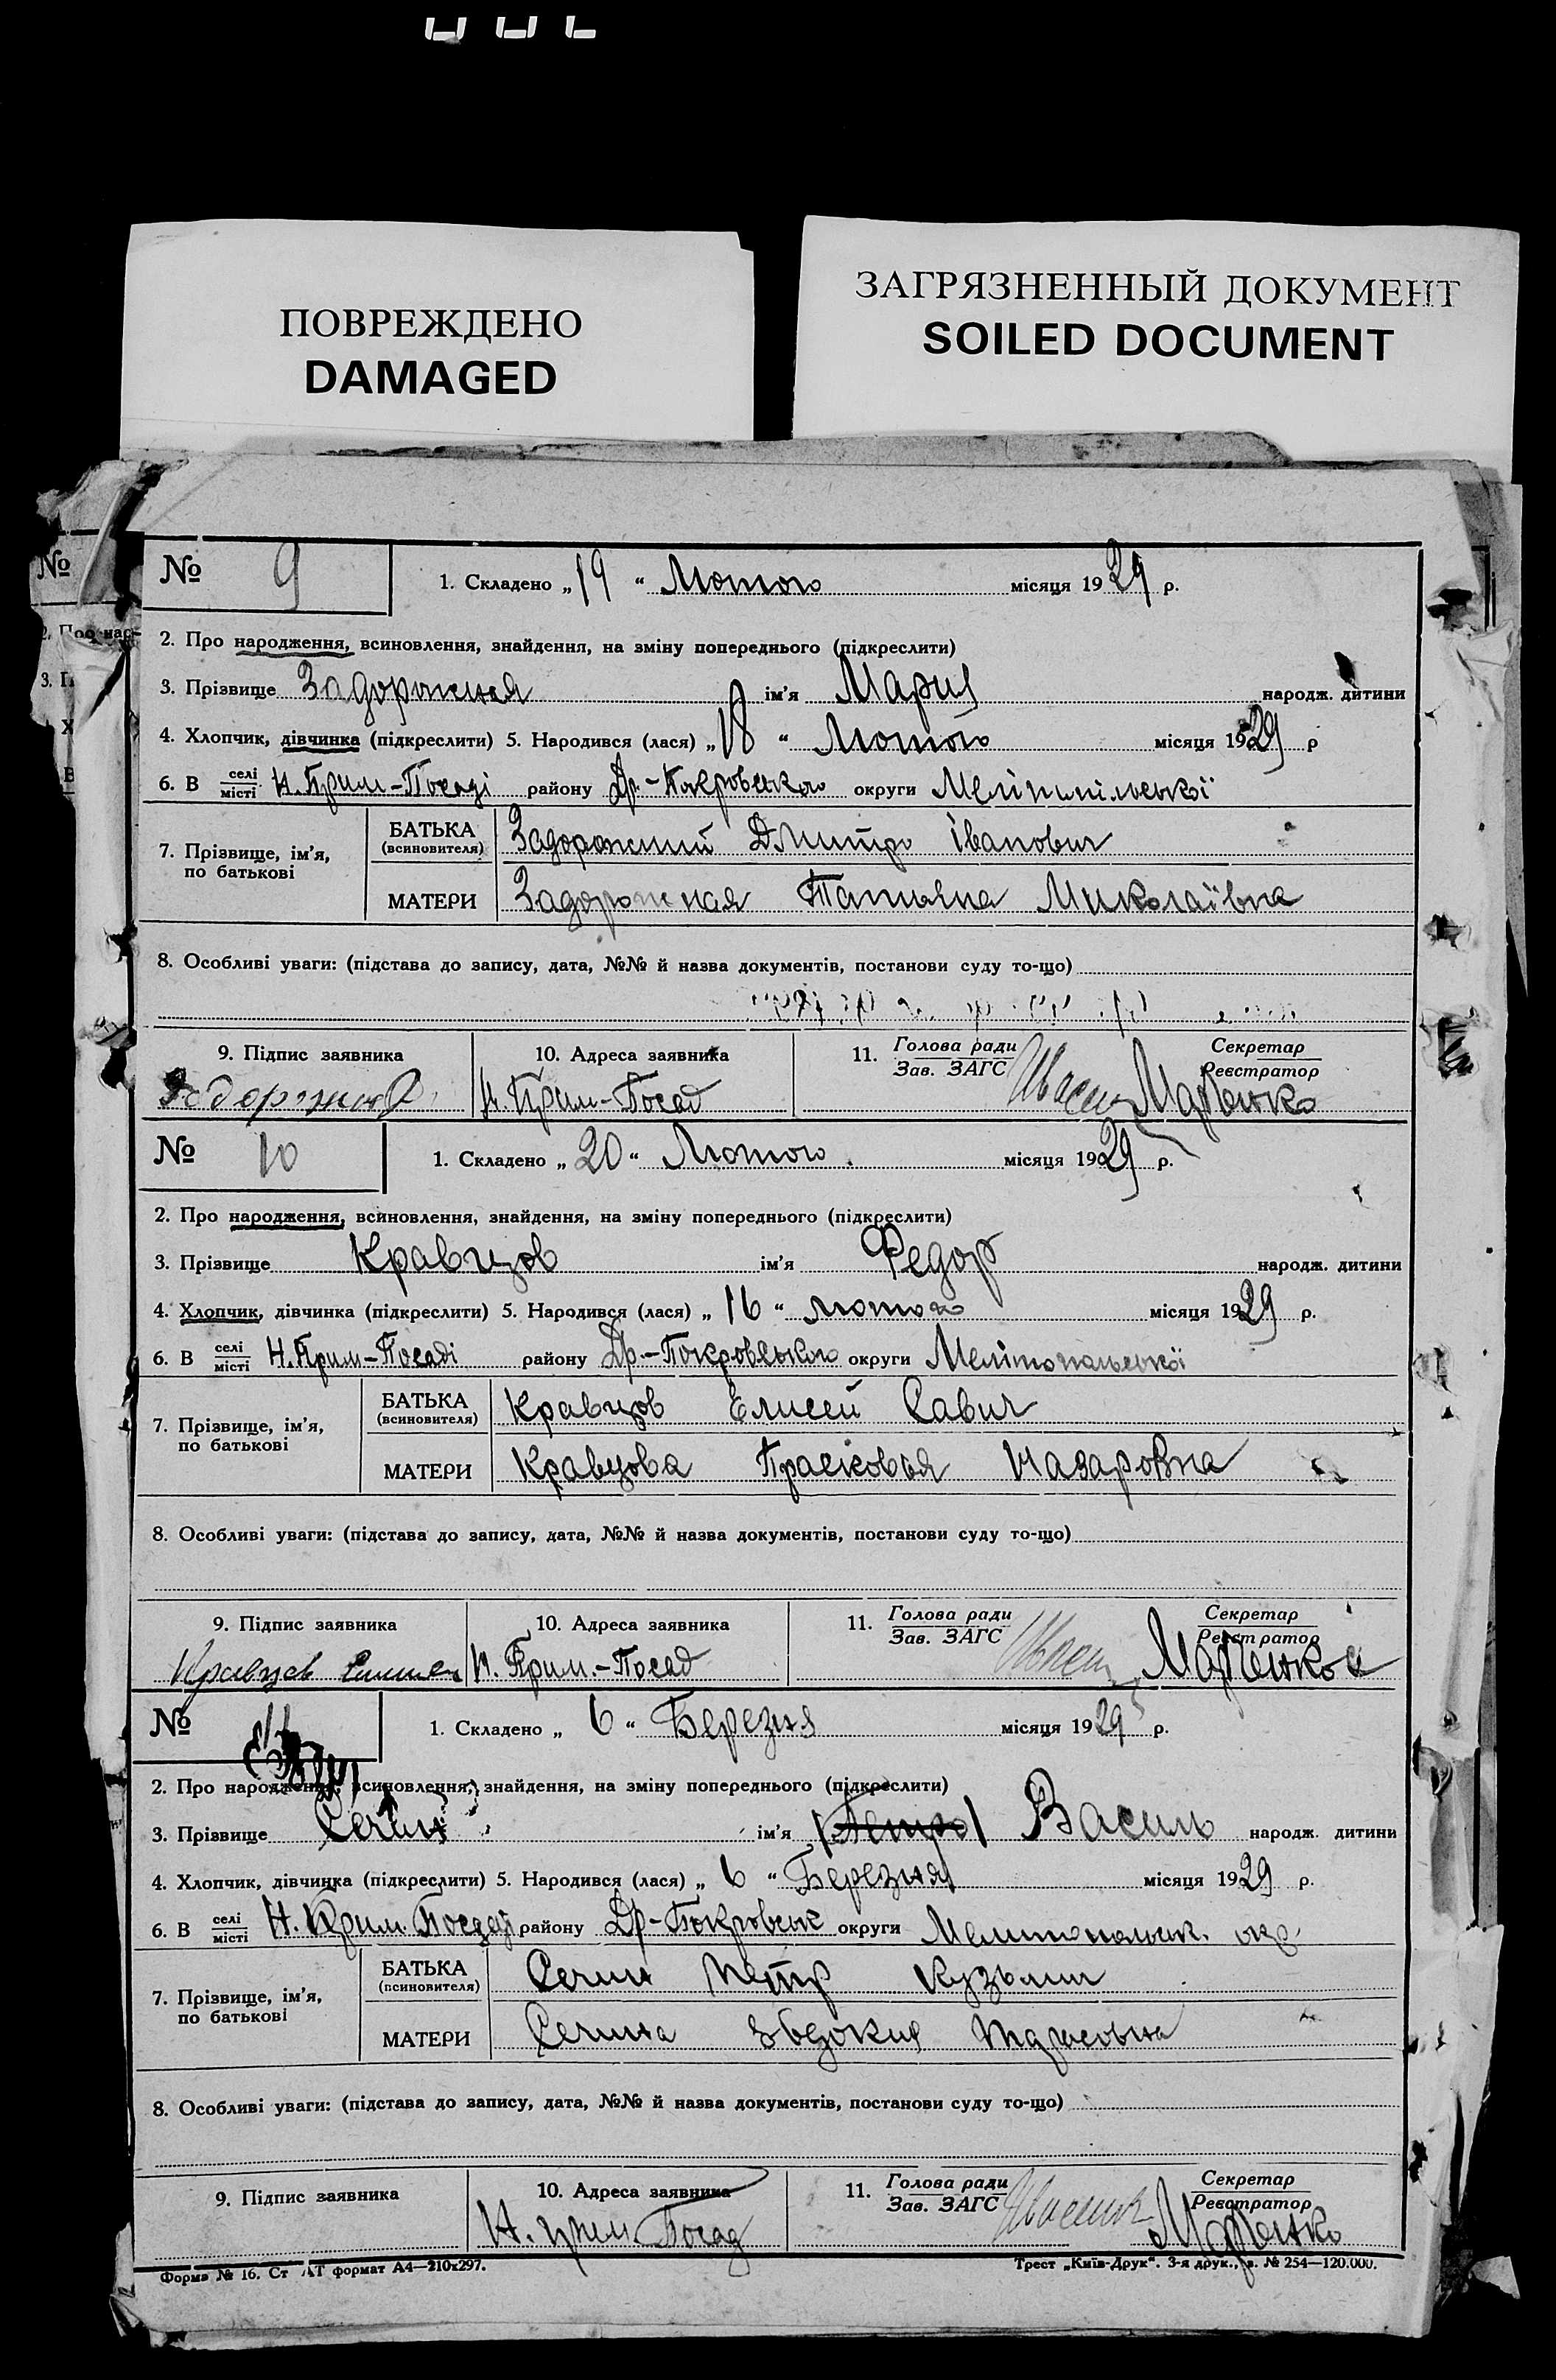 ПОВРЕЖДЕНО
DAMAGED
ЗАГРЯЗНЕННЫЙ ДОКУМЕНТ
SOILED DOCUMENT
№ 9 1. Складено „19“ Лютого місяця 1929 р.
2. Про народження, всиновлення, знайдення, на зміну попереднього (підкреслити)
3. Прізвище Задорожная ім'я Мария народж. дитини
4. Хлопчик, дівчинка (підкреслити) 5. Народився (лася) „18“ Лютого місяця 1929 р
6. В селі місті Н. Прим-Посаді району Др.-Покровського округи Мелітопільської
7. Прізвище, ім'я, по батькові БАТЬКА (всиновителя) Задорожний Дмитро Іванович
МАТЕРИ Задорожная Татьяна Миколаївна
8. Особливі уваги: (підстава до запису, дата, №№ й назва документів, постанови суду то-що)
9. Підпис заявника 10. Адреса заявника 11. Голова ради Зав. ЗАГС Секретар Реєстратор
Н. Прим-Посад
№ 10 1. Складено „20“ Лютого місяця 1929 р.
2. Про народження, всиновлення, знайдення, на зміну попереднього (підкреслити)
3. Прізвище Кравцов ім'я Федор народж. дитини
4. Хлопчик, дівчинка (підкреслити) 5. Народився (лася) „16“ лютого місяця 1929 р.
6. В селі місті Н. Прим-Посаді району Др.-Покровського округи Мелітопольської
7. Прізвище, ім'я, по батькові БАТЬКА (всиновителя) Кравцов Елисей Савич
МАТЕРИ Кравцова Прасковья Назаровна
8. Особливі уваги: (підстава до запису, дата, №№ й назва документів, постанови суду то-що)
9. Підпис заявника 10. Адреса заявника 11. Голова ради Зав. ЗАГС Секретар Реєстратор
Кравцов Н. Прим.-Посад
№ 11 1. Складено „6“ Березня місяця 1929 р.
2. Про народження, всиновлення, знайдення, на зміну попереднього (підкреслити)
3. Прізвище Сечин ім'я (Петро) Василь народж. дитини
4. Хлопчик, дівчинка (підкреслити) 5. Народився (лася) „6“ Березня місяця 1929 р.
6. В селі місті Н. Прим. Посаді району Др-Покровськ округи Мелитопольськ. окр.
7. Прізвище, ім'я, по батькові БАТЬКА (всиновителя) Сечин Петр Кузьмич
МАТЕРИ Сечина Эвдокия Тарасовна
8. Особливі уваги: (підстава до запису, дата, №№ й назва документів, постанови суду то-що)
9. Підпис заявника 10. Адреса заявника 11. Голова ради Зав. ЗАГС Секретар Реєстратор
Н. Прим. Посад
Форма № 16. Ст АТ формат А4—210х297. Трест „Київ-Друк“. 3-я друк., з. № 254—120.000.